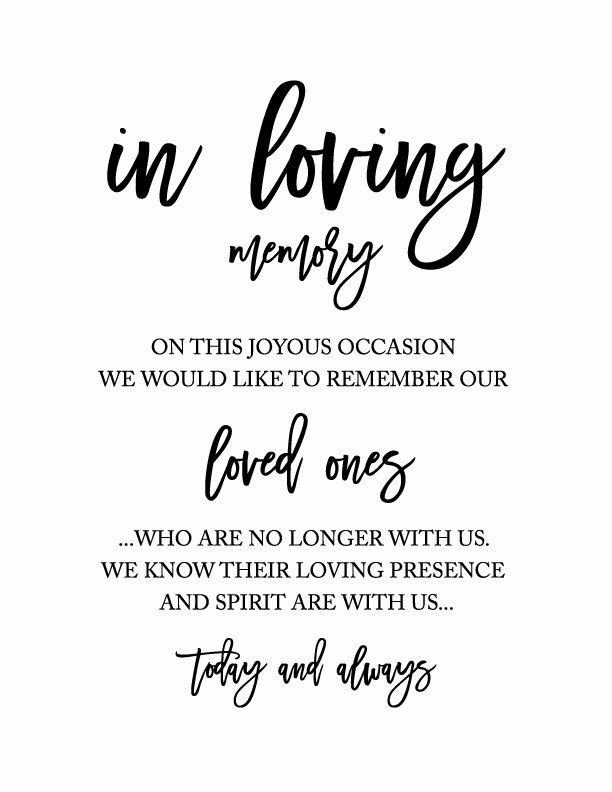 in loving
memory
ON THIS JOYOUS OCCASION
WE WOULD LIKE TO REMEMBER OUR
loved ones
...WHO ARE NO LONGER WITH US.
WE KNOW THEIR LOVING PRESENCE
AND SPIRIT ARE WITH US...
today and always